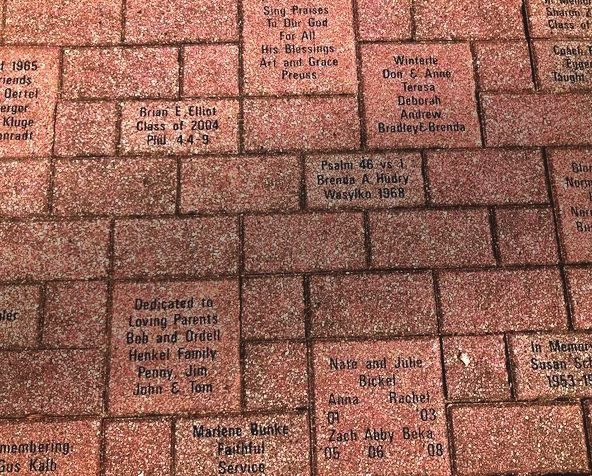 Sing Praises
To Our God
For All
His Blessings
Art and Grace
Preuss
In Memor
Class of
1965
riends
Oertel
erger
Kluge
onradt
Winterle
Don & Anne
Teresa
Deborah
Andrew
Bradley&Brenda
Egger
Taught
Brian E. Elliot
Class of 2004
Phil 4:4-9
Psalm 46 vs 1
Brenda A. Hudry
Wasylko 1968
Dedicated to
Loving Parents
Bob and Ordell
Henkel Family
Penny, Jim,
John & Tom
Nate and Julie
Bickel
Anna Rachel
01 '03
Zach Abby Beka
05 06 08
In Memor
Susan Sch
1953-19
Marlene Bunke
Faithful
Service
membering:
Gus Kalb